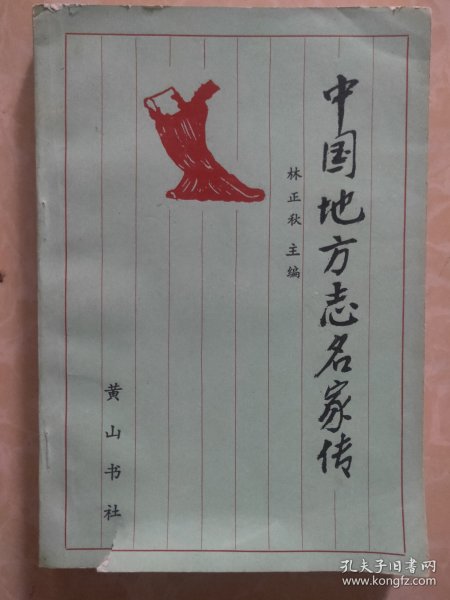 中国地方志名家传
林正秋 主编
黄山书社
孔夫子旧书网
www.kongfz.com